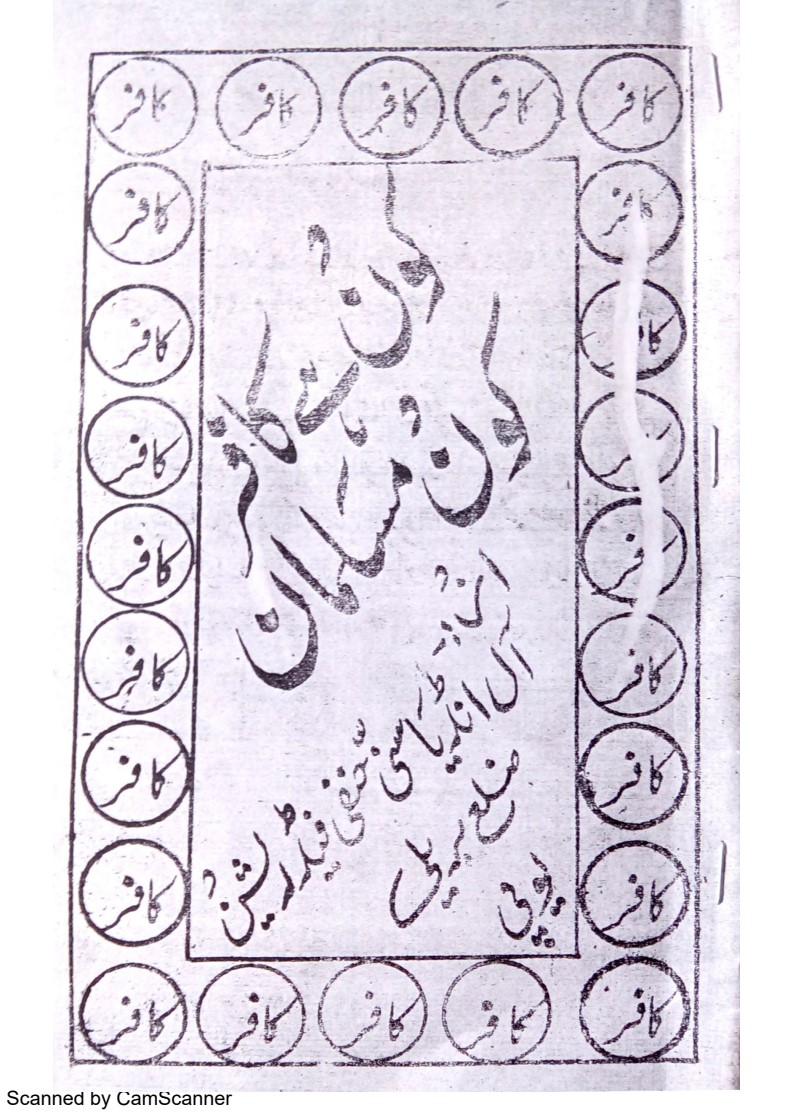 کافر کافر کافر کافر کافر
کون ہے کافر
کون مسلمان
آل انڈیا سنی حنفی فیڈریشن
ضلع بریلی
یوپی
کافر کافر
کافر کافر
کافر کافر
کافر کافر
کافر کافر
کافر کافر
کافر کافر
کافر کافر کافر کافر کافر
Scanned by CamScanner